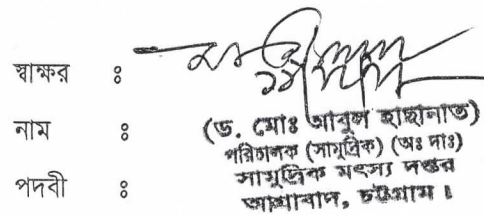 স্বাক্ষর ঃ
নাম ঃ (ড. মোঃ আবুল হাছানাত)
পদবী ঃ পরিচালক (সামুদ্রিক) (অঃ দাঃ)
সামুদ্রিক মৎস্য দপ্তর
আগ্রাবাদ, চট্টগ্রাম।